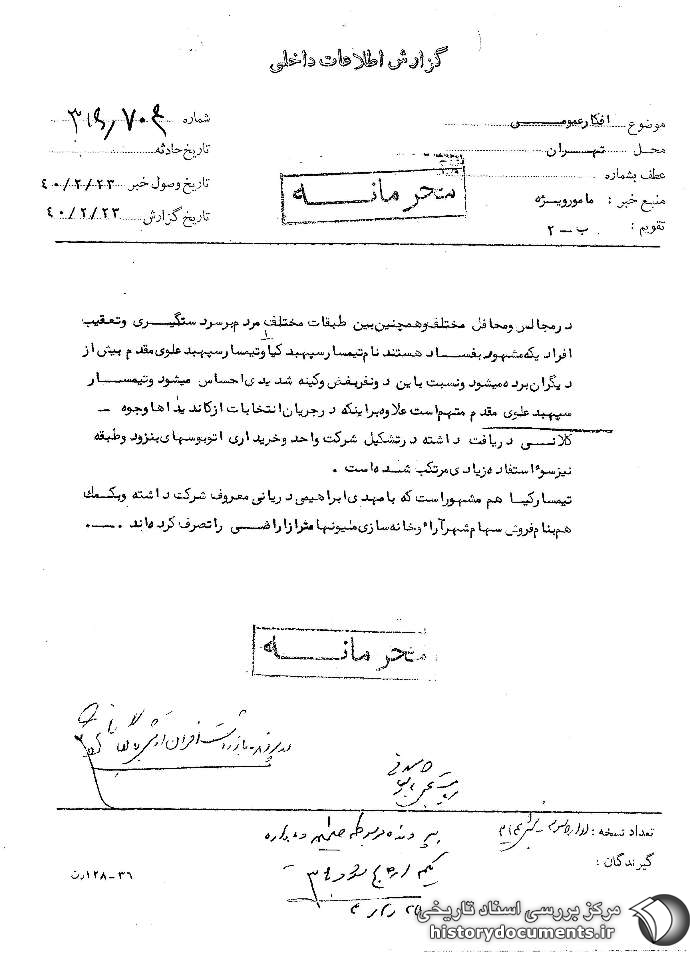 گزارش اطلاعات داخلی
موضوع افکار عمومی
محل تهران
عطف بشماره
منبع خبر : مامور ویژه
تقویم : ب - ۲
شماره
تاریخ حادثه
تاریخ وصول خبر ۴۰/۲/۲۳
تاریخ گزارش ۴۰/۲/۲۳
محرمانه
در مجالس و محافل مختلف و همچنین بین طبقات مختلف مردم بر سر دستگیری و تعقیب
افرادیکه مشهور بفساد هستند نام تیمسار سپهبد کیا و تیمسار سپهبد علوی مقدم بیش از
دیگران برده میشود و نسبت باین دو نفر بغض و کینه شدیدی احساس میشود و تیمسار
سپهبد علوی مقدم متهم است علاوه بر اینکه در جریان انتخابات از کاندیداها وجوه
کلانی دریافت داشته در تشکیل شرکت واحد و خریداری اتوبوسهای بنز و دو طبقه
نیز سوء استفاده زیادی مرتکب شده است .
تیمسار کیا هم مشهور است که با مهدی ابراهیمی دریانی معروف شرکت داشته و بکمک
هم بنام فروش سهام شهرآرا و خانه سازی ملیونها متر از اراضی را تصرف کرده اند .
محرمانه
تعداد نسخه :
گیرندگان :
۳۶-۱۲۸ رن
پرونده مربوطه
مرکز بررسی اسناد تاریخی
historydocuments.ir